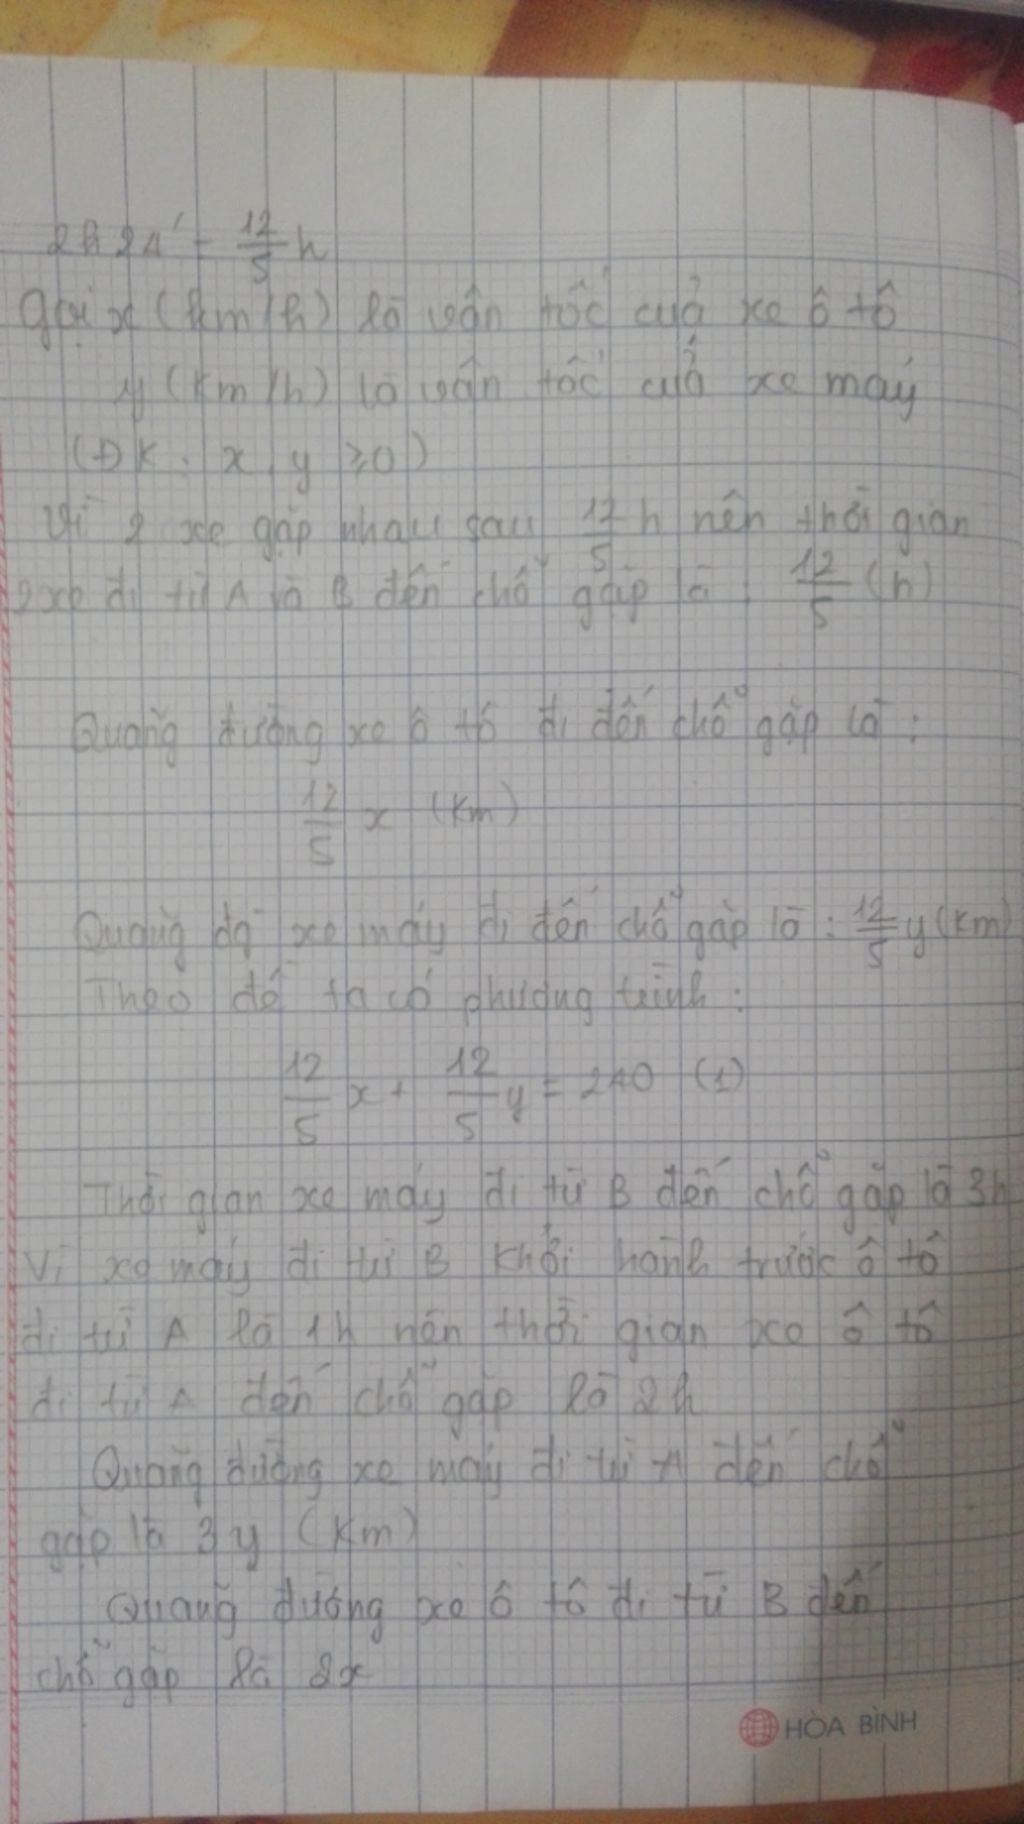 2h 24' = 12/5 h
Gọi x (km/h) là vận tốc của xe ô tô
y (km/h) là vận tốc của xe máy
(ĐK: x, y ≥0)
Vì 2 xe gặp nhau sau 12/5 h nên thời gian
2 xe đi từ A và B đến chỗ gặp là: 12/5 (h)
Quãng đường xe ô tô đi đến chỗ gặp là:
12/5 x (km)
Quãng đg xe máy đi đến chỗ gặp là: 12/5 y (km)
Theo đề ta có phương trình:
12/5 x + 12/5 y = 240 (1)
Thời gian xe máy đi từ B đến chỗ gặp là 3h
Vì xe máy đi từ B khởi hành trước ô tô
đi từ A là 1h nên thời gian xe ô tô
đi từ A đến chỗ gặp là 2h
Quãng đường xe máy đi từ A đến chỗ
gặp là 3y (km)
Quãng đường xe ô tô đi từ B đến
chỗ gặp là 2x
HÒA BÌNH